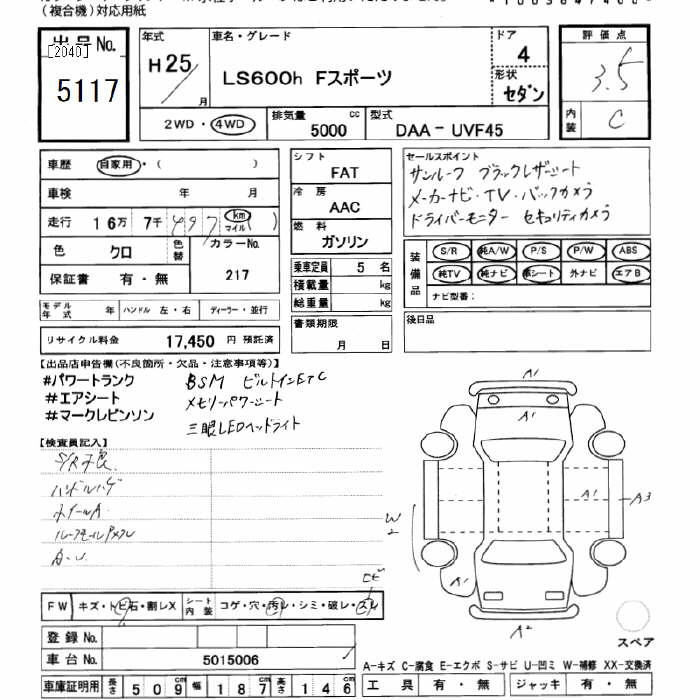 (複合機)対応用紙
出品No.
[2040]
5117
年式
H25/
月
車名・グレード
LS600h Fスポーツ
ドア
4
形状
セダン
評価点
3.5
内装
C
2WD・4WD
排気量
cc
5000
型式
DAA-UVF45
車歴 自家用・( )
車検 年 月
走行 16万 7千 497 (km マイル)
色 クロ 色替 カラーNo.
217
保証書 有・無
シフト
FAT
冷房
AAC
燃料
ガソリン
乗車定員 5 名
積載量 kg
総重量 kg
書類期限
月 日
セールスポイント
サンルーフ ブラックレザーシート
メーカーナビ・TV・バックカメラ
ドライバーモニター セキュリティカメラ
装備品
S/R 純A/W P/S P/W ABS
純TV 純ナビ 革シート 外ナビ エアB
ナビ型番:
後日品
モデル年式 年 ハンドル 左・右 ディーラー・並行
リサイクル料金 17,450 円 預託済
【出品店申告欄(不良箇所・欠品・注意事項等)】
#パワートランク BSM ビルトインETC
#エアシート メモリーパワーシート
#マークレビンソン 三眼LEDヘッドライト
【検査員記入】
S/R不良
ハンドルハゲ
ホイールA
A・U
A1
A1
A1
A3
W2
A1
A2
スペア
FW キズ・トビ石・割レX シート内装 コゲ・穴・汚レ・シミ・破レ・スレ
登録No.
車台No. 5015006
車庫証明用 長さ 509 cm 幅 187 cm 高さ 146 cm
A-キズ C-腐食 E-エクボ S-サビ U-凹ミ W-補修 XX-交換済
工具 有・無 ジャッキ 有・無